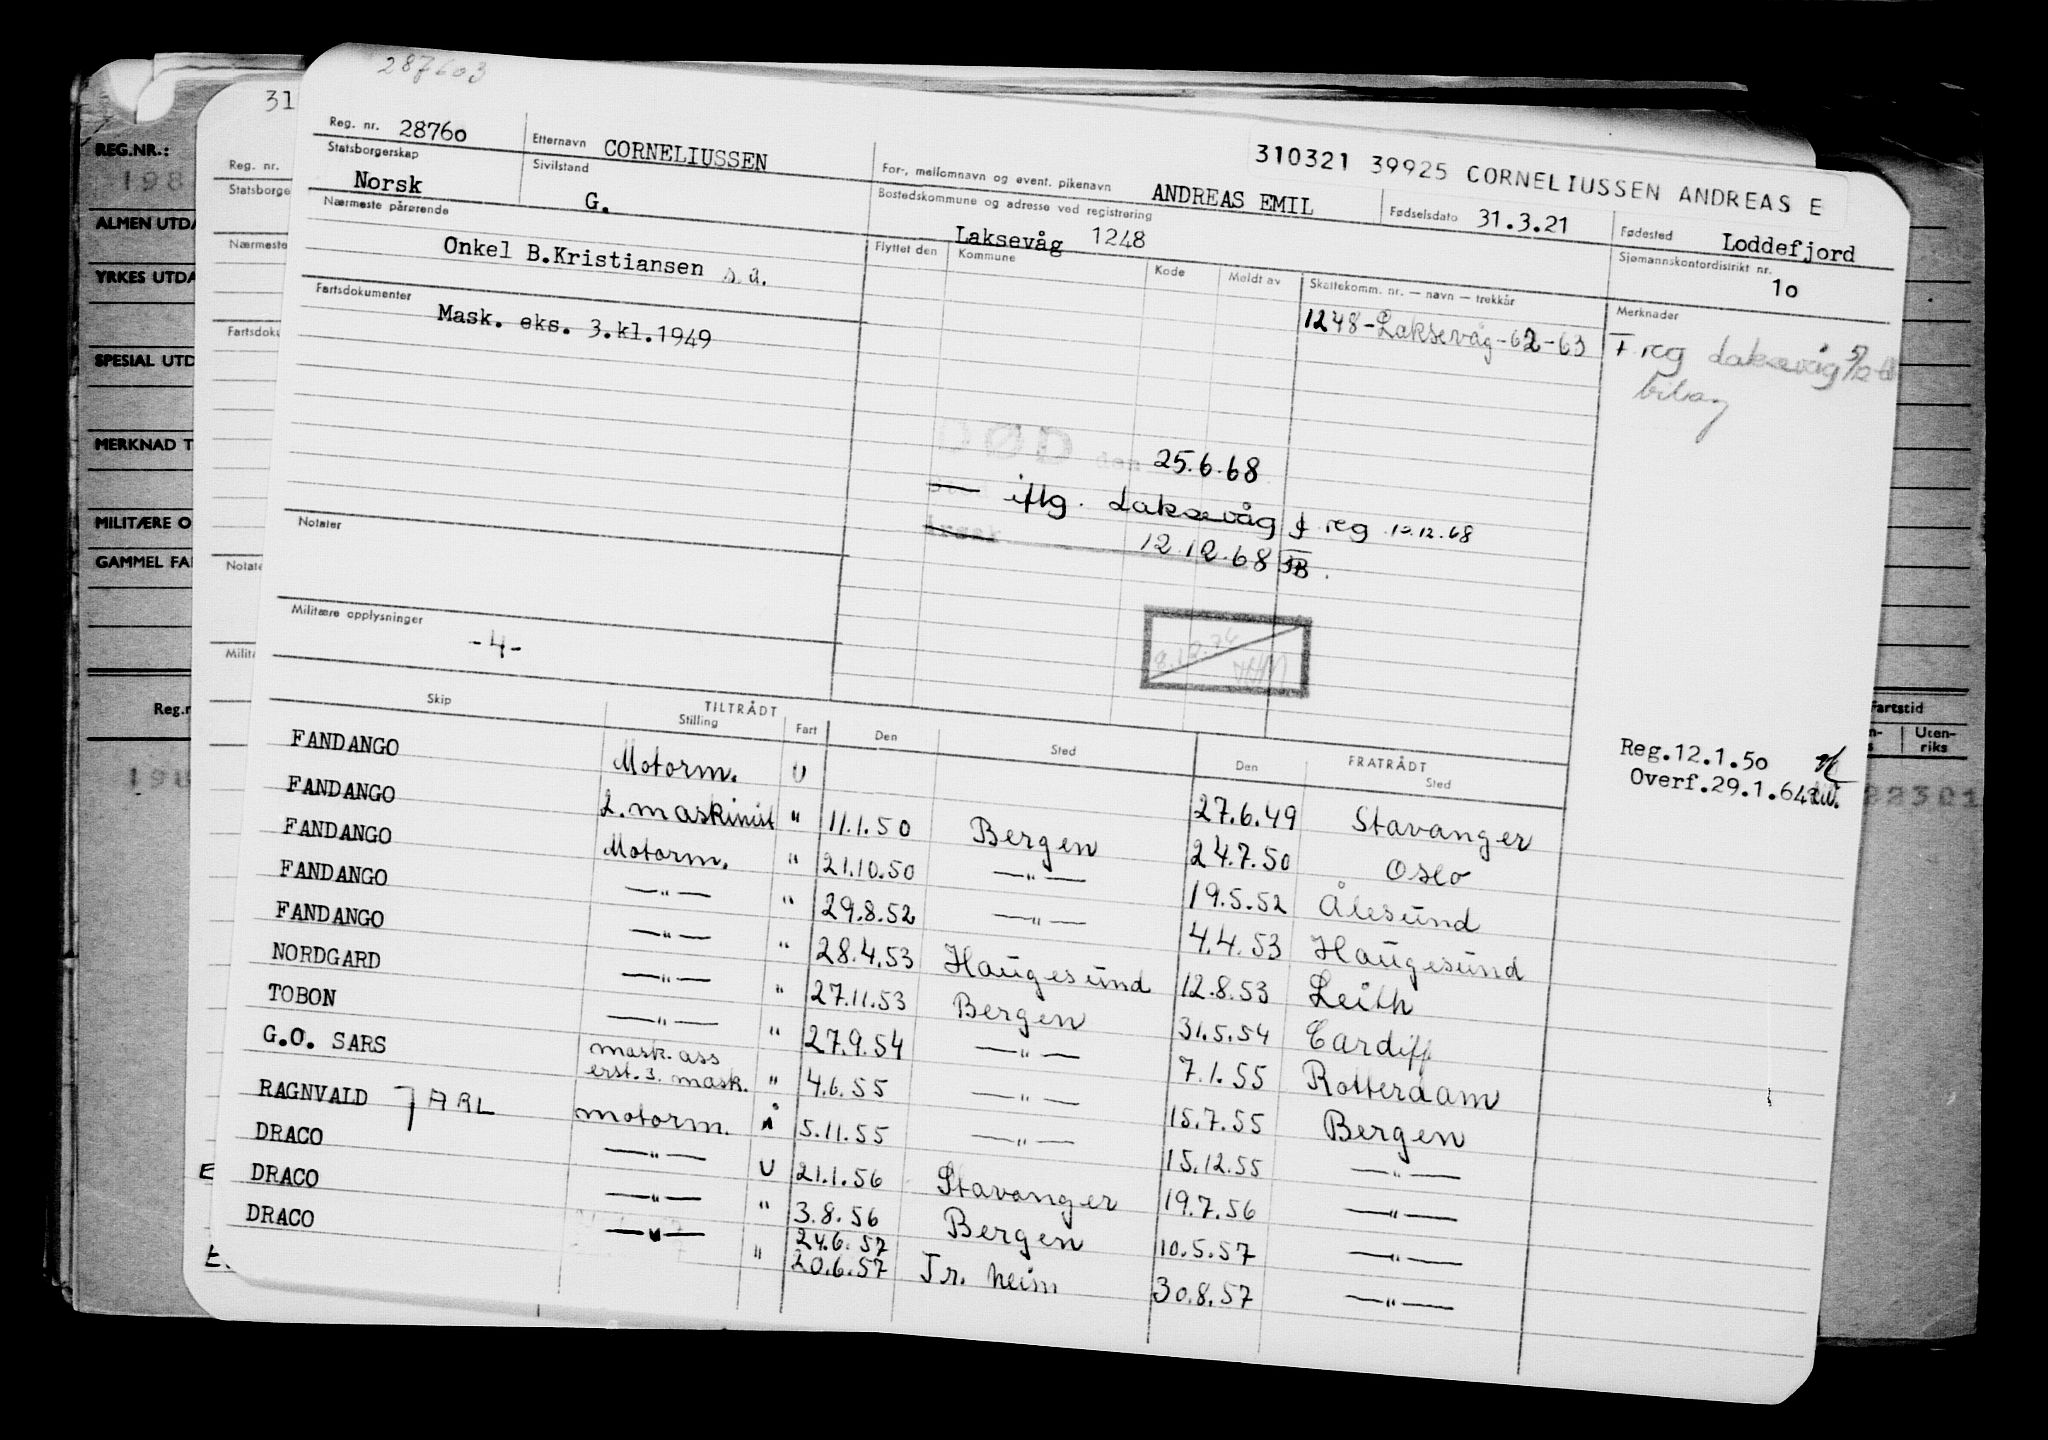 287603
31
Reg. nr. 2876o
Etternavn CORNELIUSSEN
For-, mellomnavn og event. pikenavn ANDREAS EMIL
310321 39925 CORNELIUSSEN ANDREAS E
Fødselsdato 31.3.21
Fødested Loddefjord
Statsborgerskap Norsk
Sivilstand G.
Bostedskommune og adresse ved registrering
Laksevåg 1248
Sjømannskontordistrikt nr. 1o
Nærmeste pårørende
Onkel B.Kristiansen s.å.
Flyttet den Kommune Kode Meldt av Skattekomm. nr. — navn — trekkår Merknader
1248-Laksevåg-62-63
F.reg Laksevåg
Fartsdokumenter
Mask. eks. 3.kl.1949
DØD den 25.6.68
iflg. Laksevåg f. reg 12.12.68
12.12.68
Notater
Militære opplysninger
-4-
8.12.74
Skip TILTRÅDT Stilling Fart Den Sted FRATRÅDT Den Sted
Reg.12.1.5o
Overf.29.1.64
FANDANGO Motorm. U 27.6.49 Stavanger
FANDANGO 2. maskinist " 11.1.50 Bergen 24.7.50 Oslo
FANDANGO Motorm. " 21.10.50 —"— 19.5.52 Ålesund
FANDANGO —"— " 29.8.52 —"— 4.4.53 Haugesund
FANDANGO —"— " 28.4.53 Haugesund 12.8.53 Leith
NORDGARD —"— " 27.11.53 Bergen 31.5.54 Cardiff
TOBON —"— " 27.9.54 —"— 7.1.55 Rotterdam
G.O. SARS mask. ass erst. 3. mask. " 4.6.55 —"— 15.7.55 Bergen
RAGNVALD JARL motorm. Å 5.11.55 —"— 15.12.55 —"—
DRACO —"— U 21.1.56 Stavanger 19.7.56 —"—
DRACO —"— " 3.8.56 Bergen 10.5.57 —"—
24.6.57
DRACO —"— " 20.6.57 Tr. heim 30.8.57 —"—
REG.NR.:
198
ALMEN UTDA
YRKES UTDA
SPESIAL UTD
MERKNAD T
MILITÆRE O
GAMMEL FA
Reg.n
Reg. nr.
Statsborge
Nærmeste
Fartsdoku
Notate
Milit
artstid
Uten-
riks
22301